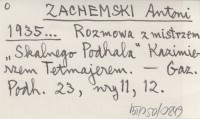 ZACHEMSKI Antoni
1935... Rozmowa z mistrzem
"Skalnego Podhala" Kazimie-
rzem Tetmajerem. — Gaz.
Podh. 23, nry 11, 12.